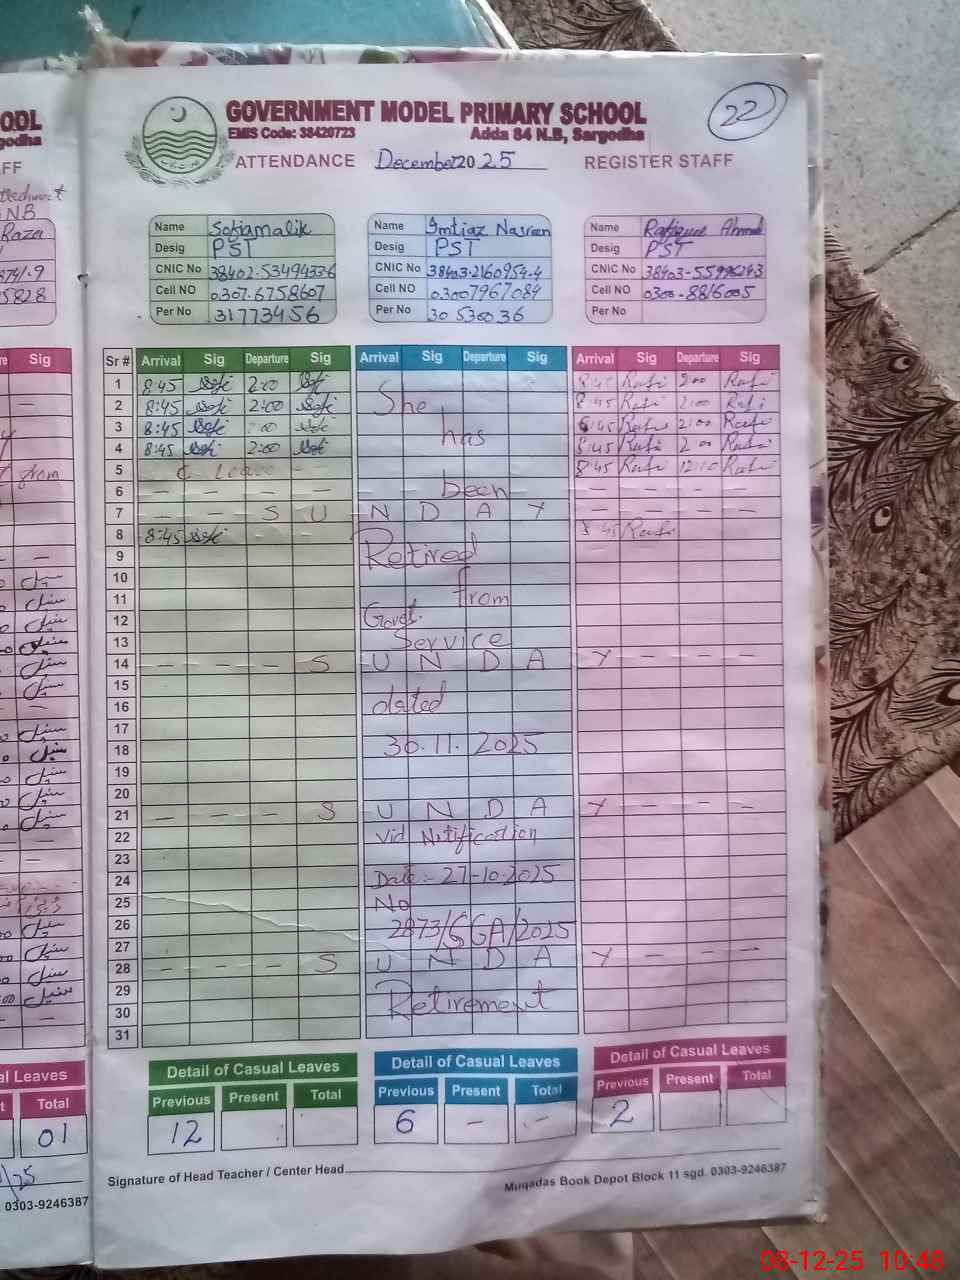 GOVERNMENT MODEL PRIMARY SCHOOL
22
EMIS Code: 38420723 Adda 84 N.B, Sargodha
ATTENDANCE December 2025 REGISTER STAFF
Name Sofia malik
Desig PST
CNIC No 38402-5349433-6
Cell NO 0307-6758607
Per No 31773456
Name Imtiaz Nasreen
Desig PST
CNIC No 38403-2160954-4
Cell NO 03007967084
Per No 30530036
Name Rafique Ahmad
Desig PST
CNIC No
Cell NO 0300-8816005
Per No
Sr # Arrival Sig Departure Sig Arrival Sig Departure Sig Arrival Sig Departure Sig
1 8:45 Sofi 2:00 Sofi Rafi 2:00 Rafi
2 8:45 Sofi 2:00 Sofi She 8:45 Rafi 2:00 Rafi
3 8:45 Sofi 2:00 Sofi has 8:45 Rafi 2:00 Rafi
4 8:45 Sofi 2:00 Sofi 8:45 Rafi 2:00 Rafi
5 C Leave - 8:45 Rafi 12:10 Rafi
6 - - - - been - - - -
7 - - S U N D A Y - - - -
8 8:45 Sofi - - Retired 8:45 Rafi
9
10
11 from
12 Govt.
13 Service
14 - - - S U N D A Y - - -
15
16 dated
17
18 30.11.2025
19
20
21 - - - S U N D A Y - - -
22 Vid Notification
23
24 Date:- 27-10-2025
25 No
26 2873/GGA/2025
27
28 - - - S U N D A Y - - -
29
30 Retirement
31
Detail of Casual Leaves
Previous Present Total
12
Detail of Casual Leaves
Previous Present Total
6 - -
Detail of Casual Leaves
Previous Present Total
2
Signature of Head Teacher / Center Head
Muqadas Book Depot Block 11 sgd. 0303-9246387
N.B
Raza
5828
Sig
from
Total
01
/25
0303-9246387
08-12-25 10:48